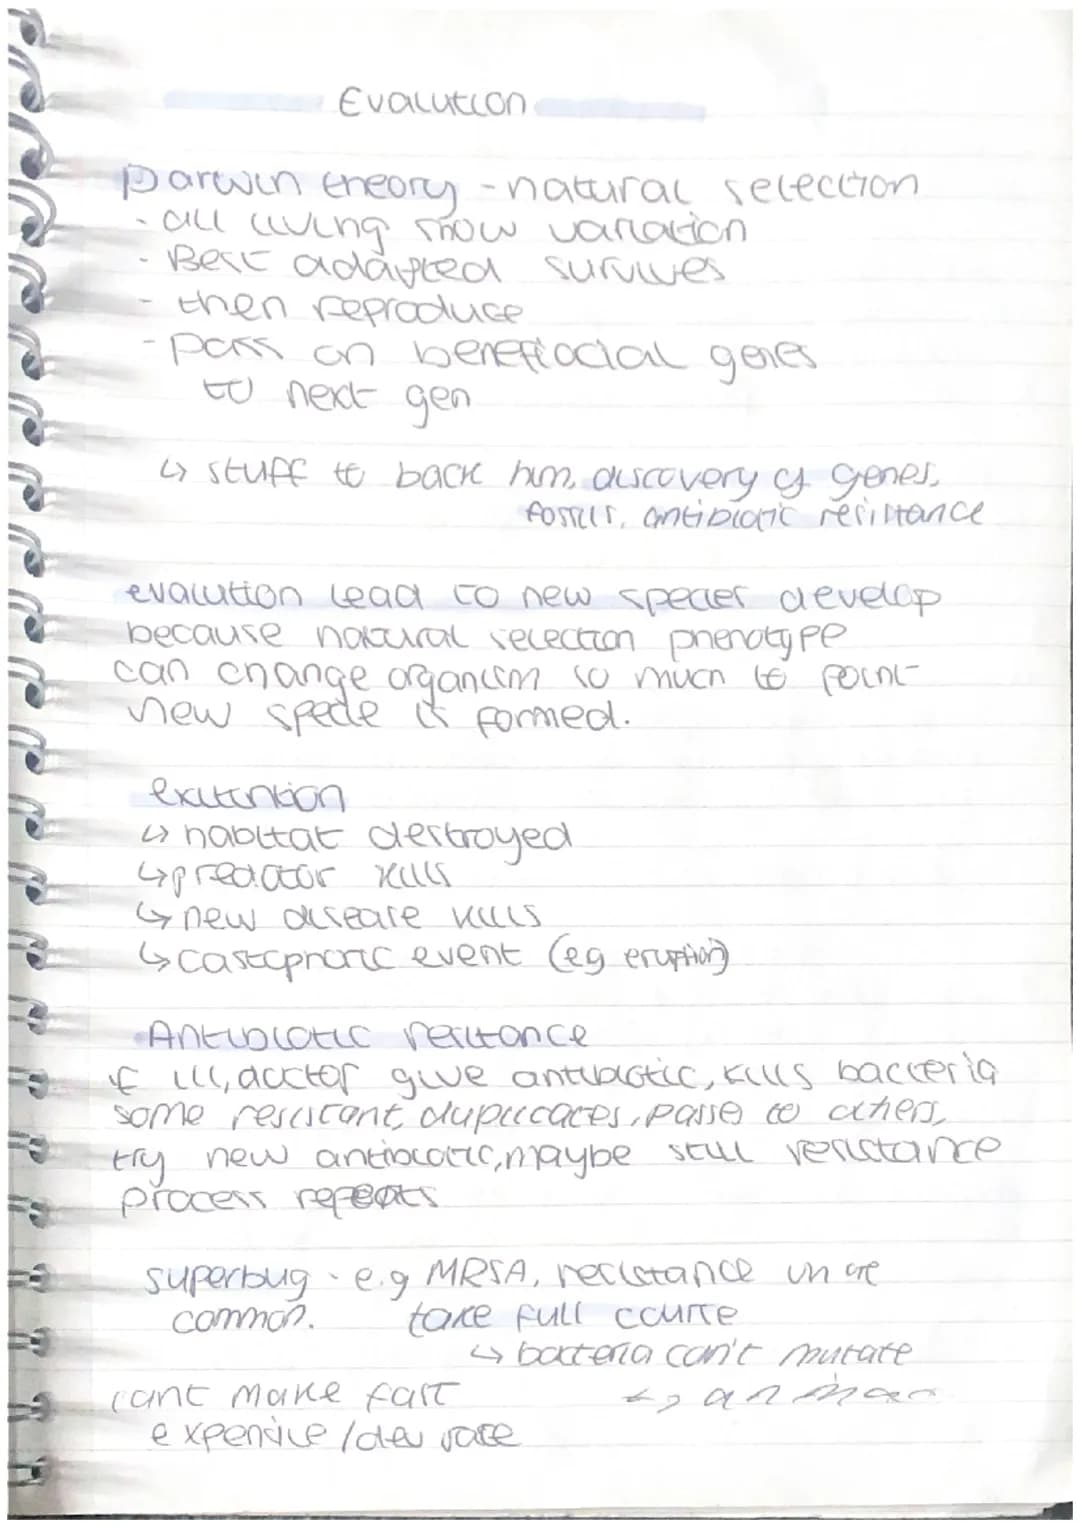 Evalution
Darwin theory - natural selection
- all living show variation
- Best adapted survives
- then reproduce
- pass on beneffiocial genes
to next gen
↳ stuff to back him, discovery of genes,
fossils, antibiotic resistance
evalution lead to new species develop
because natural selection phenotype
can change organism so much to point
new specie is formed.
exitintion
↳ habitat destroyed
↳ predator kills
↳ new disease kills
↳ castophoric event (eg eruption)
Antibiotic resitance
if ill, doctor give antibiotic, kills bacteria
some resistant, duplicates, passe to others,
try new antibiotic, maybe still resistance
process repeats
superbug - e.g MRSA, resistance
common. take full course
↳ bacteria can't mutate
cant make fast
expensive /dev